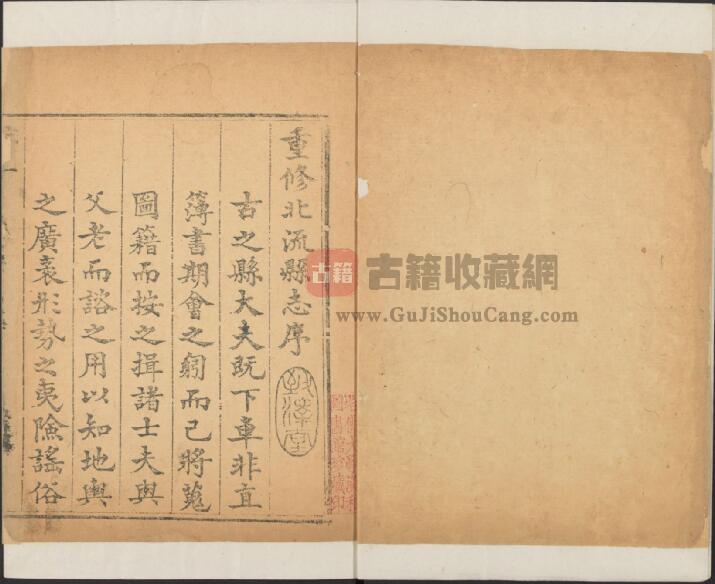 重修北流縣志序
古之縣大夫既下車非直
簿書期會之躬而已將蒐
圖籍而按之揖諸士夫與
父老而諮之用以知地輿
之廣袤形勢之夷險謠俗
古籍
古籍收藏網
www.GuJiShouCang.com